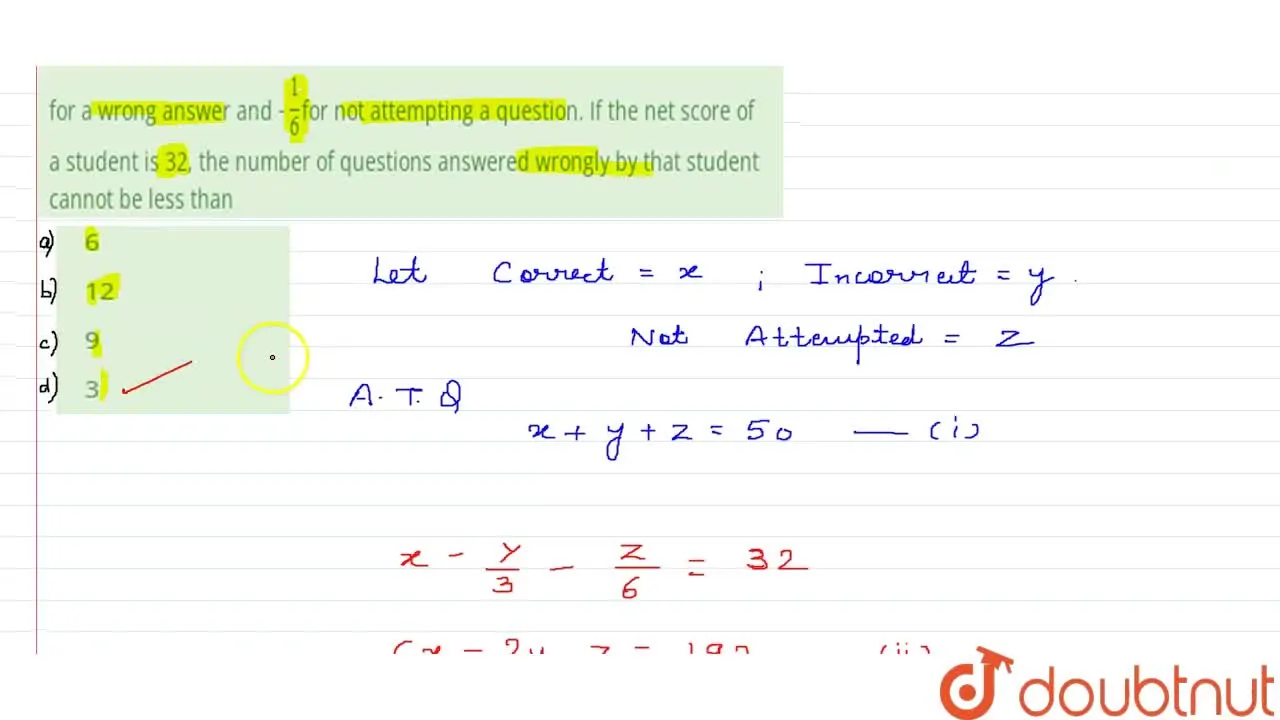 for a wrong answer and -1/6 for not attempting a question. If the net score of
a student is 32, the number of questions answered wrongly by that student
cannot be less than
a) 6
b) 12
c) 9
d) 3
Let Correct = x ; Incorrect = y.
Not Attempted = z
A.T.Q
x + y + z = 50 — (i)
x - y/3 - z/6 = 32
doubtnut